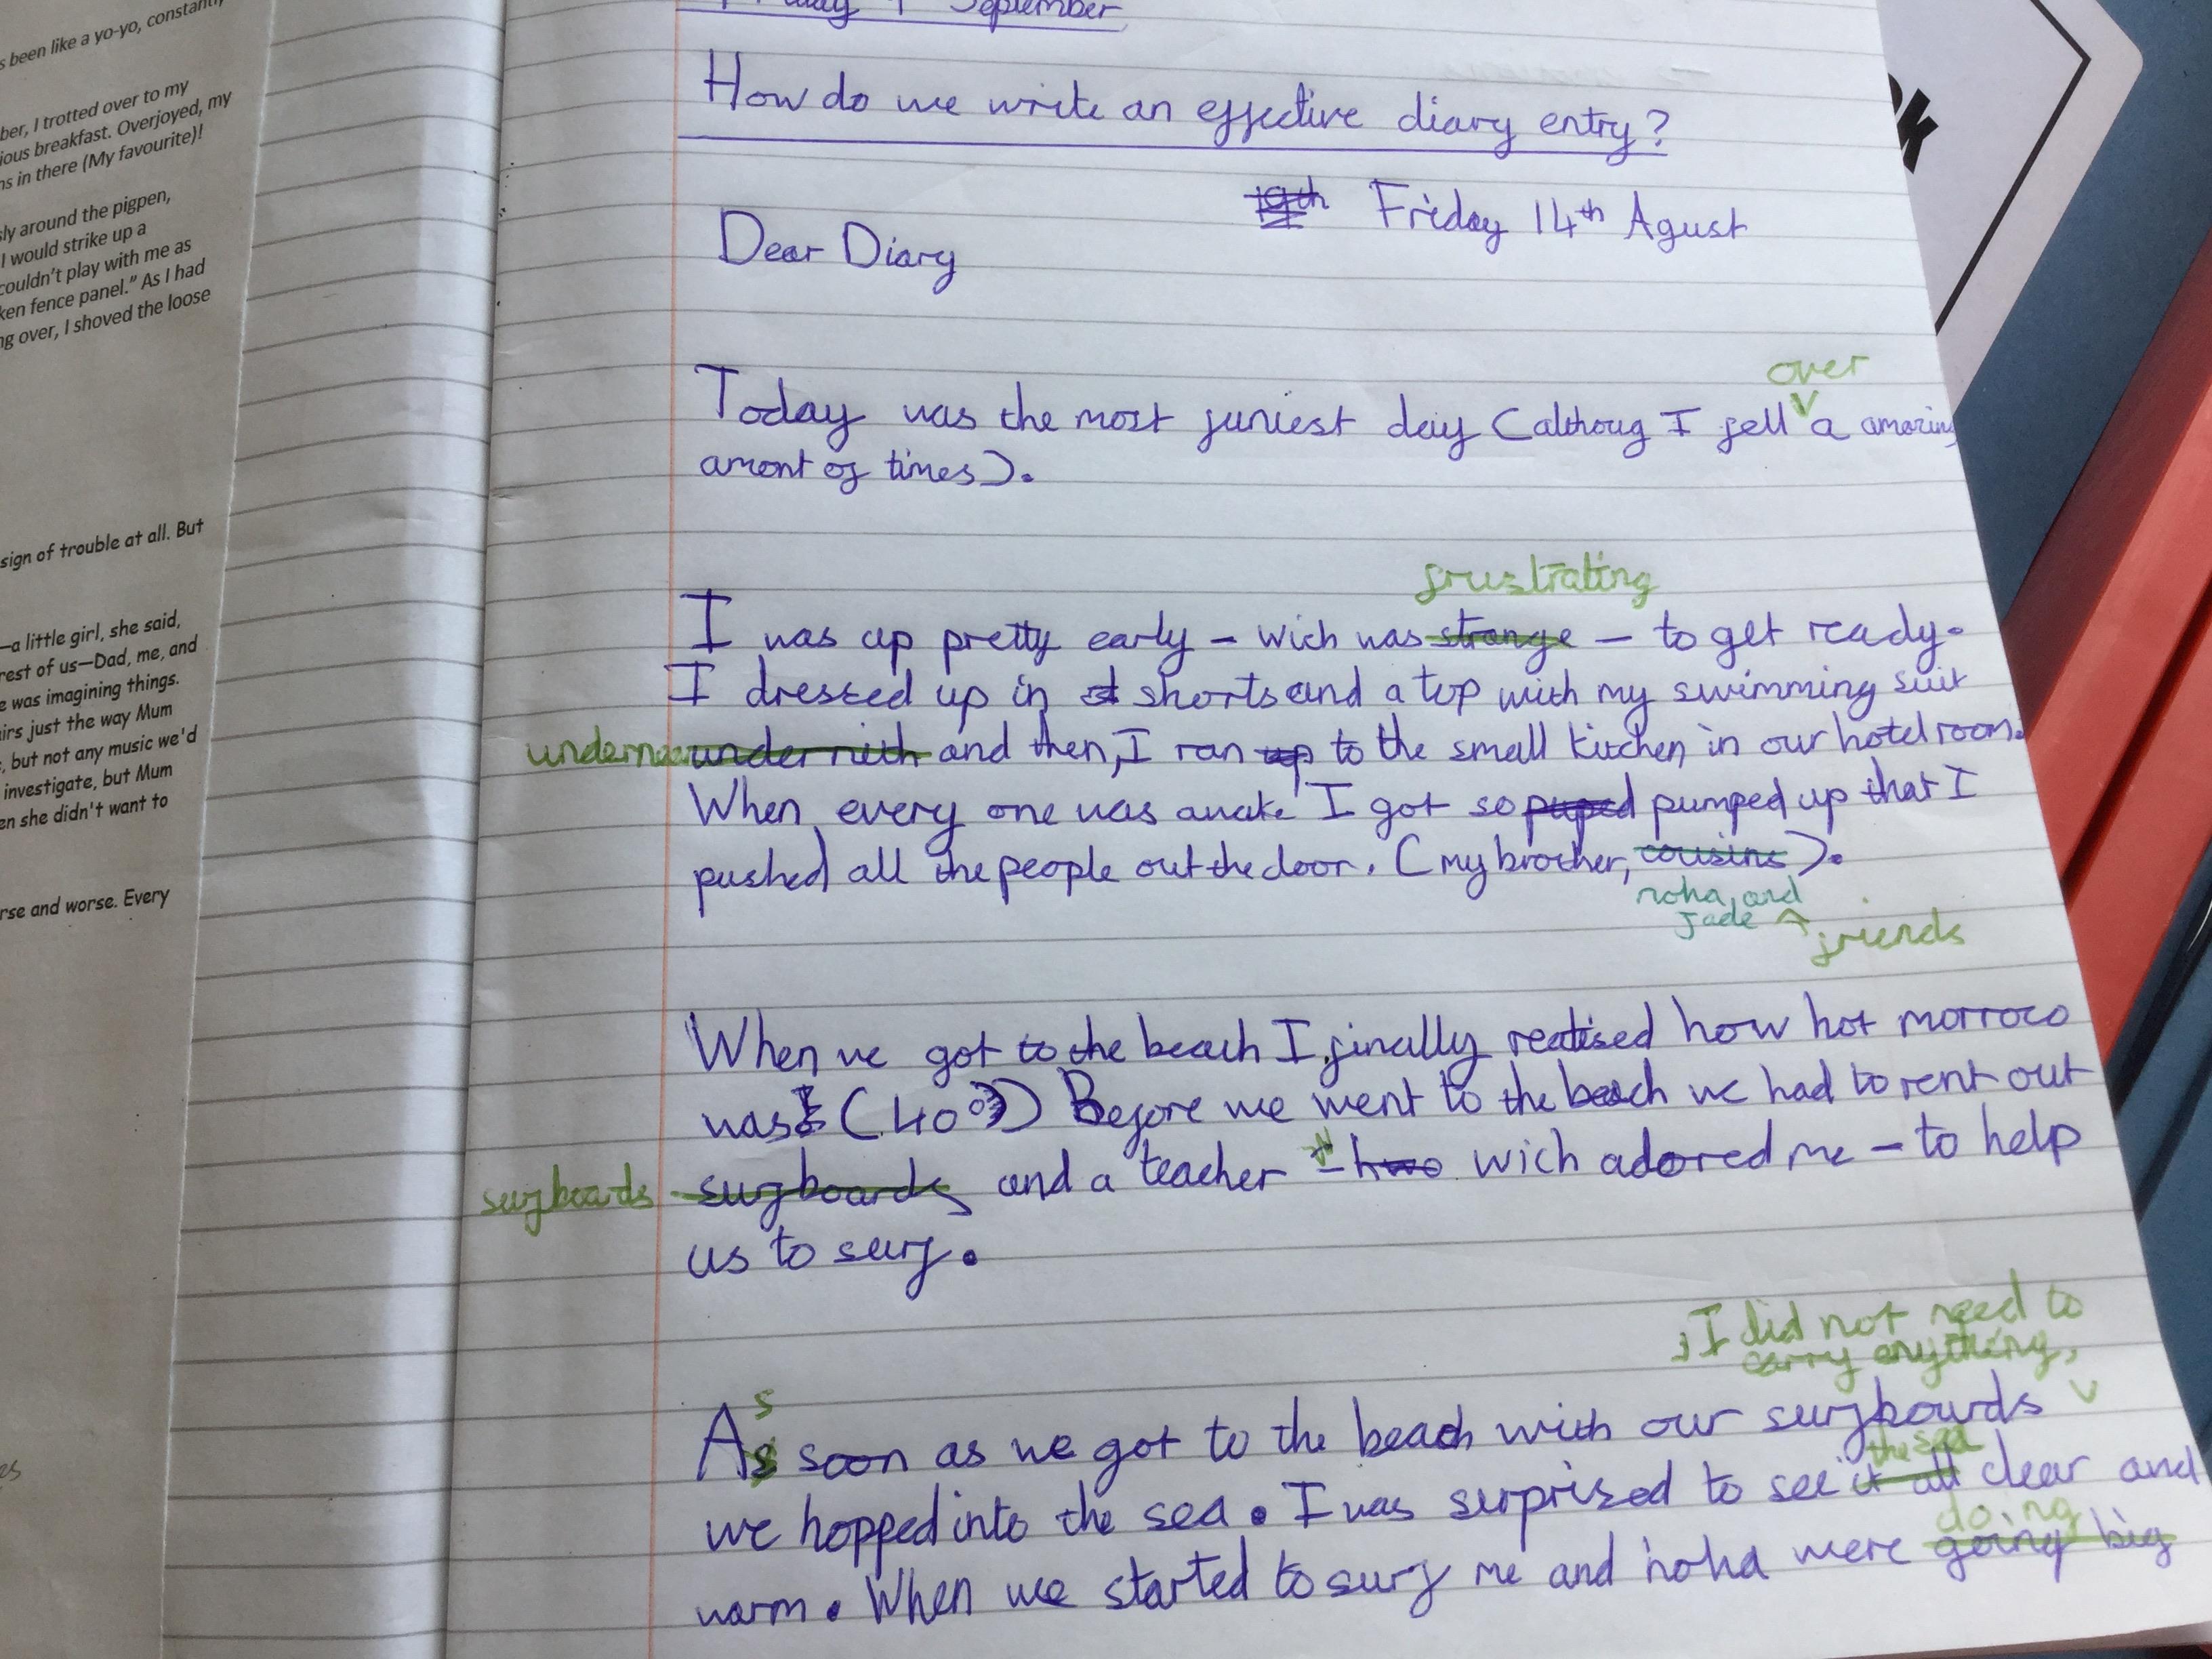 been like a yo-yo, constantly
ber, I trotted over to my
ious breakfast. Overjoyed, my
ns in there (My favourite)!
sly around the pigpen,
I would strike up a
couldn't play with me as
ken fence panel." As I had
ng over, I shoved the loose
sign of trouble at all. But
—a little girl, she said,
rest of us—Dad, me, and
e was imagining things.
irs just the way Mum
, but not any music we'd
investigate, but Mum
en she didn't want to
rse and worse. Every
es
September
How do we write an effective diary entry?
19th Friday 14th Agust
Dear Diary
over
Today was the most funiest day (althoug I fell a amazing
amont of times).
frustrating
I was up pretty early - wich was strange - to get ready.
I dressed up in st shorts and a top with my swimming suit
undernea under nith and then, I ran up to the small kitchen in our hotel room.
When every one was awake I got so puped pumped up that I
pushed all the people out the door. (my brother, cousins).
noha, and
Jade friends
When we got to the beach I finally realised how hot morroco
was (40°) Before we went to the beach we had to rent out
surfboards surfboards and a teacher - hwo wich adored me - to help
us to surf.
, I did not need to
carry anything,
s
As soon as we got to the beach with our surfbourds
the sea
we hopped into the sea. I was surprised to see it all clear and
doing
warm. When we started to surf me and noha were going big
ok